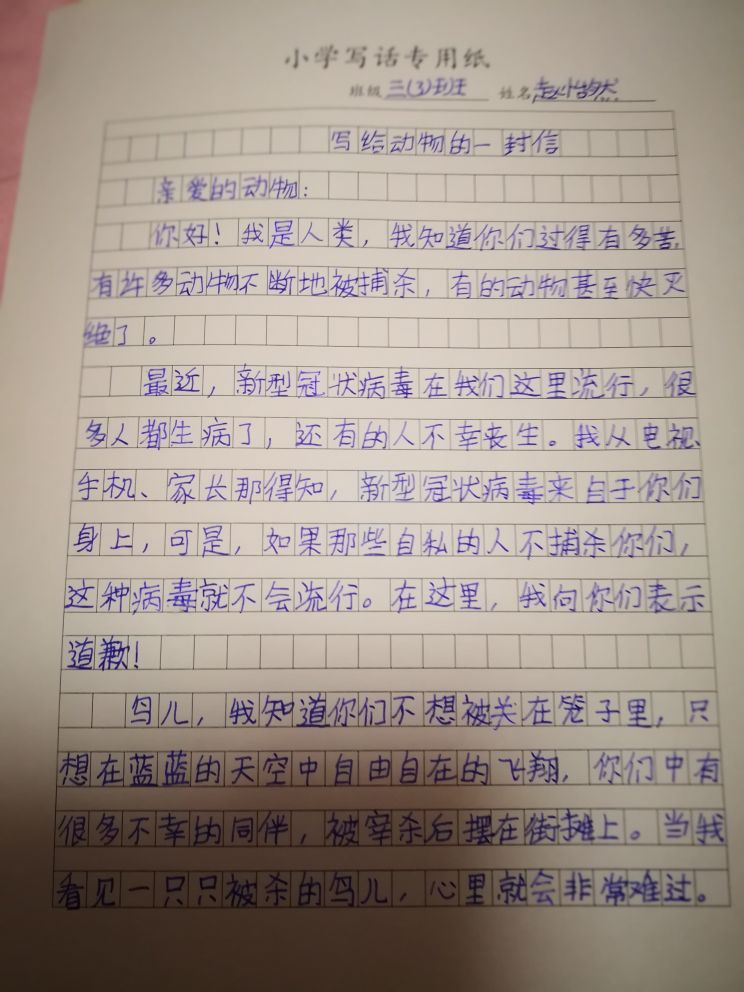 小学写话专用纸
班级 三(3)班 姓名
写给动物的一封信
亲爱的动物:
你好!我是人类,我知道你们过得有多苦,
有许多动物不断地被捕杀,有的动物甚至快灭
绝了。
最近,新型冠状病毒在我们这里流行,很
多人都生病了,还有的人不幸丧生。我从电视、
手机、家长那得知,新型冠状病毒来自于你们
身上,可是,如果那些自私的人不捕杀你们,
这种病毒就不会流行。在这里,我向你们表示
道歉!
鸟儿,我知道你们不想被关在笼子里,只
想在蓝蓝的天空中自由自在的飞翔,你们中有
很多不幸的同伴,被宰杀后摆在街摊上。当我
看见一只只被杀的鸟儿,心里就会非常难过。